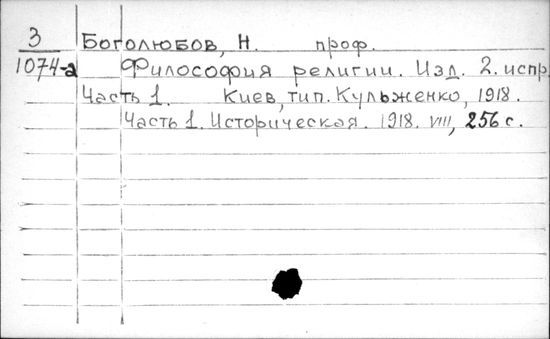 3 Боголюбов, Н. проф.
1074-а Философия религии. Изд. 2. испр.
Часть 1. Киев, тип. Кульженко, 1918.
Часть 1. Историческая. 1918. VIII, 256 с.